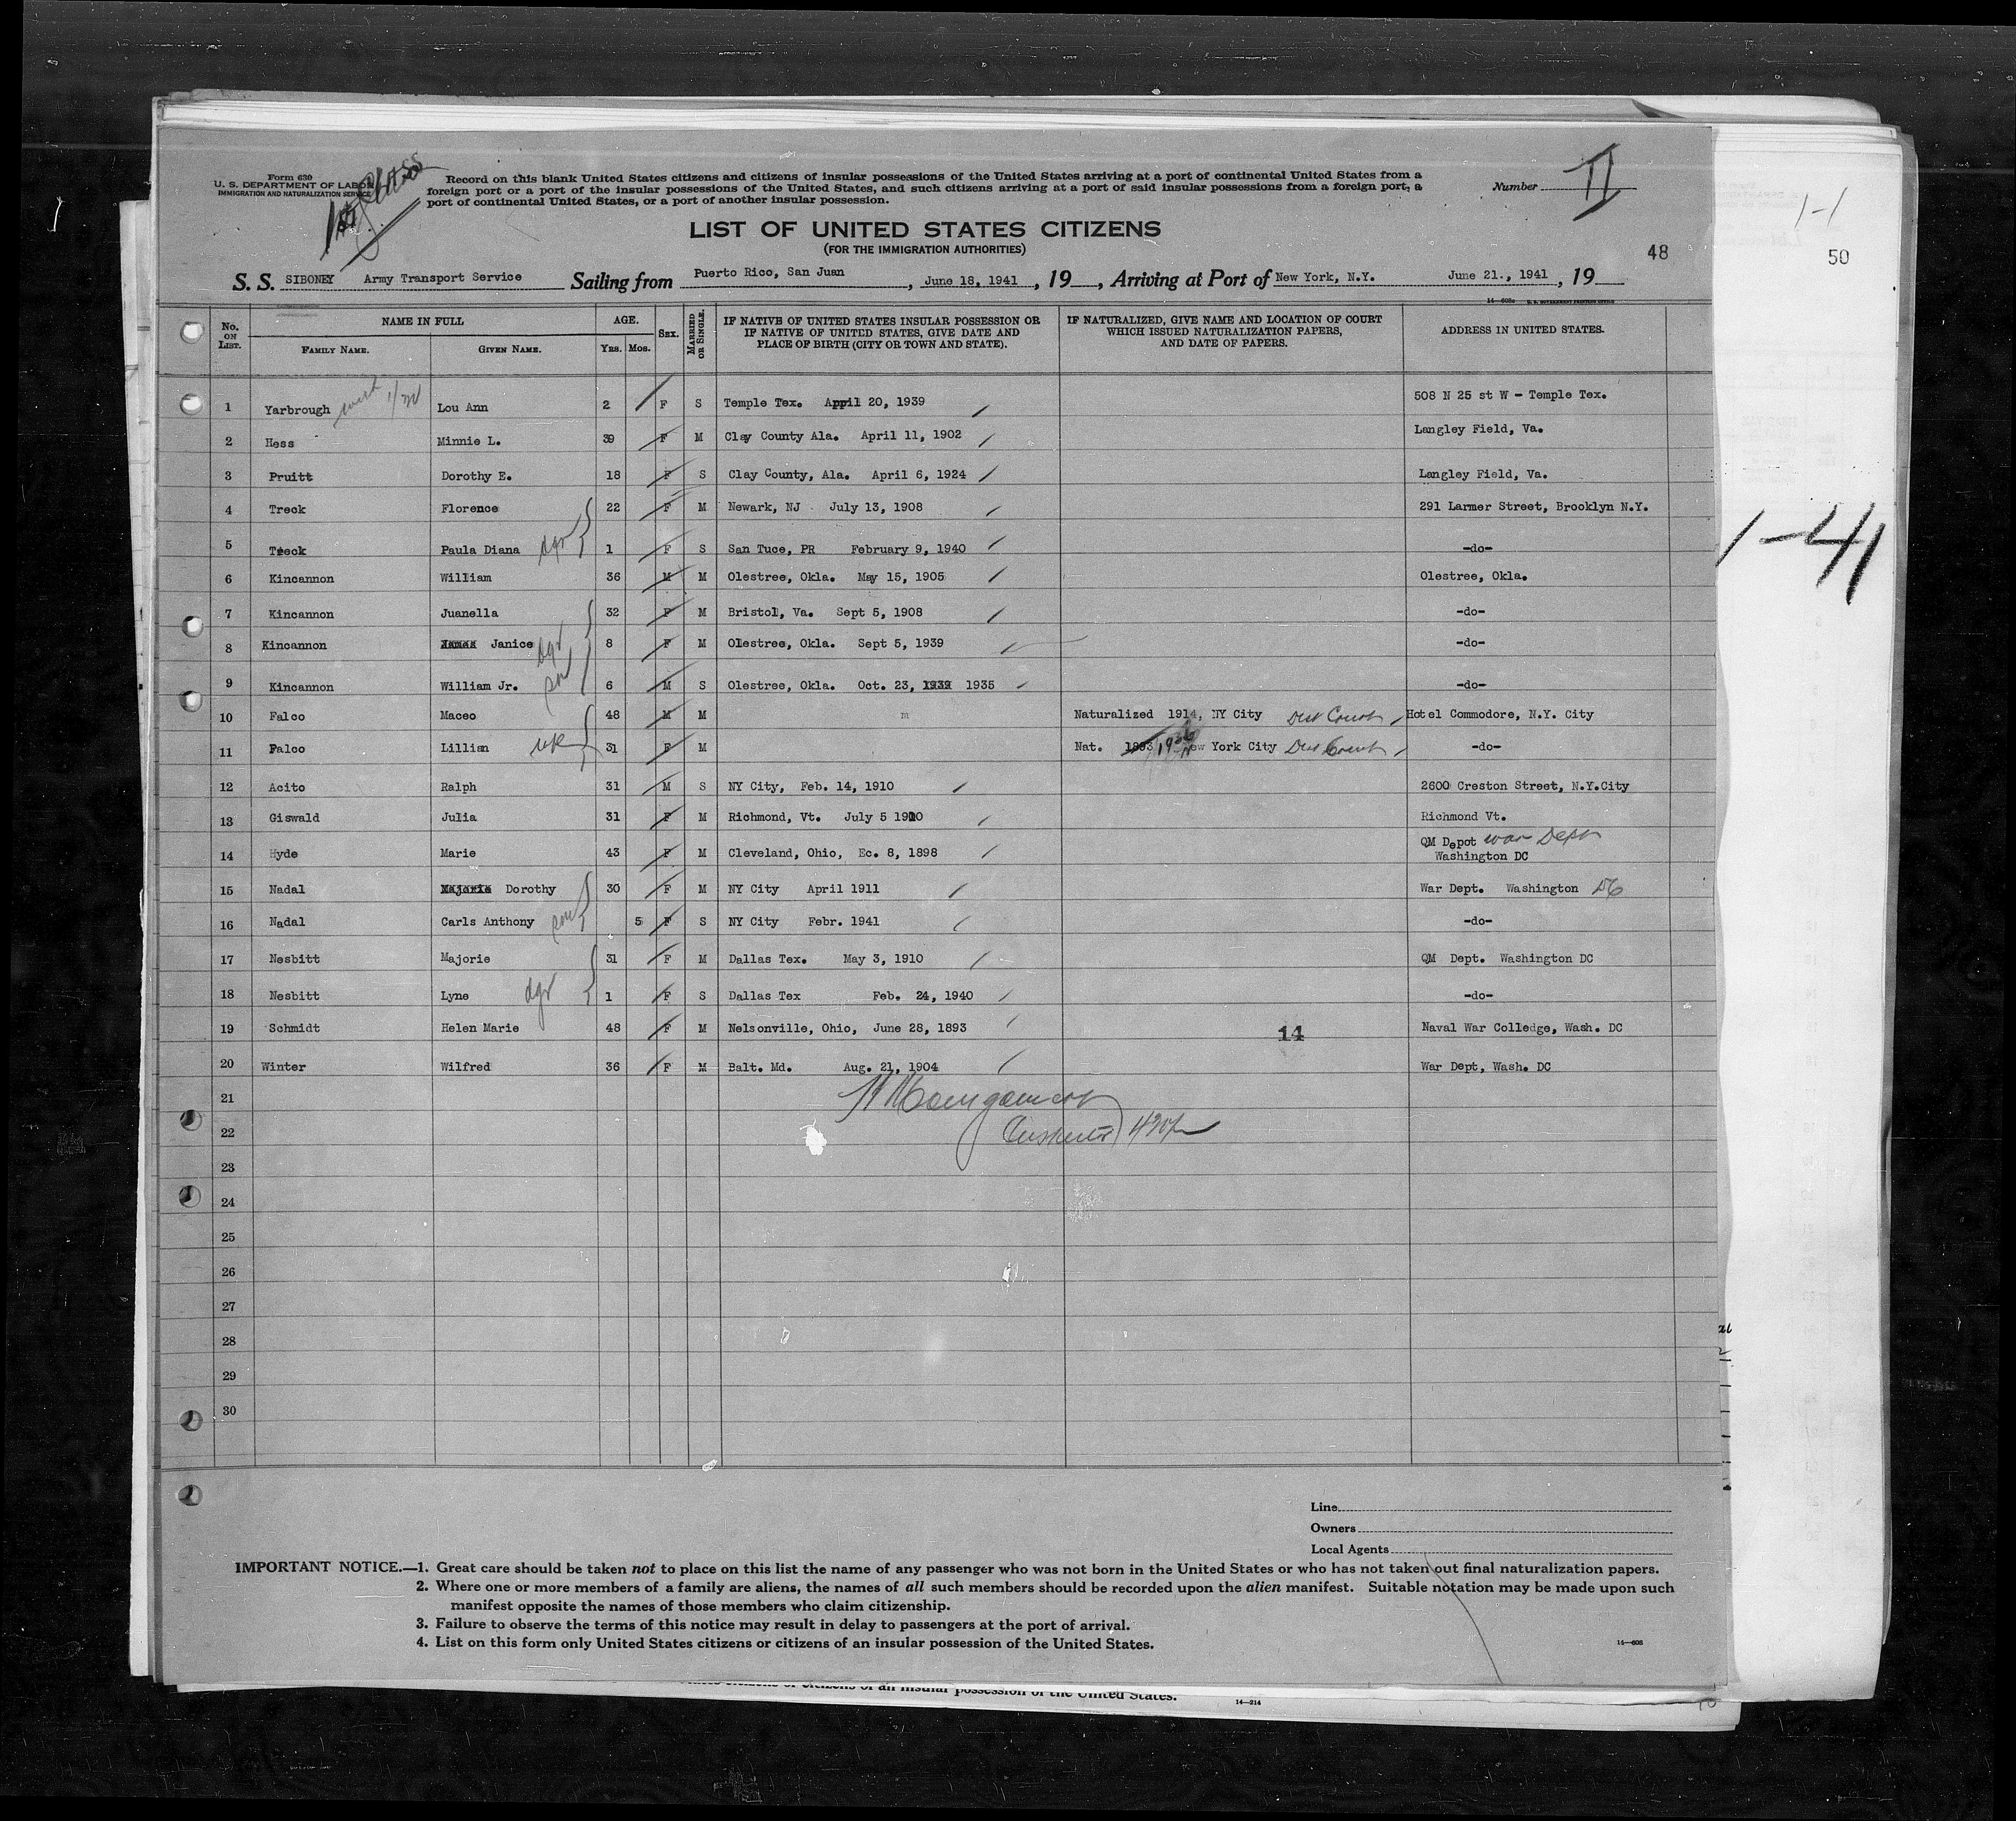 Form 630
U. S. DEPARTMENT OF LABOR
IMMIGRATION AND NATURALIZATION SERVICE
1st Class
Record on this blank United States citizens and citizens of insular possessions of the United States arriving at a port of continental United States from a
foreign port or a port of the insular possessions of the United States, and such citizens arriving at a port of said insular possessions from a foreign port, a
port of continental United States, or a port of another insular possession.
Number II
1-1
LIST OF UNITED STATES CITIZENS
(FOR THE IMMIGRATION AUTHORITIES)
48
50
S. S. SIBONEY Army Transport Service Sailing from Puerto Rico, San Juan, June 18, 1941, 19, Arriving at Port of New York, N.Y. June 21., 1941, 19
No. ON LIST. NAME IN FULL FAMILY NAME. GIVEN NAME. AGE. YRS. MOS. SEX. MARRIED OR SINGLE. IF NATIVE OF UNITED STATES INSULAR POSSESSION OR IF NATIVE OF UNITED STATES, GIVE DATE AND PLACE OF BIRTH (CITY OR TOWN AND STATE). IF NATURALIZED, GIVE NAME AND LOCATION OF COURT WHICH ISSUED NATURALIZATION PAPERS, AND DATE OF PAPERS. ADDRESS IN UNITED STATES.
1 Yarbrough Lou Ann 2 F S Temple Tex. April 20, 1939 508 N 25 st W - Temple Tex.
2 Hess Minnie L. 39 F M Clay County Ala. April 11, 1902 Langley Field, Va.
3 Pruitt Dorothy E. 18 F S Clay County, Ala. April 6, 1924 Langley Field, Va.
4 Treck Florence 22 F M Newark, NJ July 13, 1908 291 Larmer Street, Brooklyn N.Y.
5 Treck Paula Diana dgr 1 F S San Tuce, PR February 9, 1940 -do-
6 Kincannon William 36 M M Olestree, Okla. May 15, 1905 Olestree, Okla.
7 Kincannon Juanella 32 F M Bristol, Va. Sept 5, 1908 -do-
8 Kincannon Janice dgr 8 F M Olestree, Okla. Sept 5, 1939 -do-
9 Kincannon William Jr. son 6 M S Olestree, Okla. Oct. 23, 1939 1935 -do-
10 Falco Maceo 48 M M Naturalized 1914, NY City Dist Court Hotel Commodore, N.Y. City
11 Falco Lillian 31 F M Nat. 1893 New York City Dist Court -do-
12 Acito Ralph 31 M S NY City, Feb. 14, 1910 2600 Creston Street, N.Y.City
13 Giswald Julia 31 F M Richmond, Vt. July 5 1910 Richmond Vt.
14 Hyde Marie 43 F M Cleveland, Ohio, Ec. 8, 1898 QM Depot War Dept Washington DC
15 Nadal Majorie Dorothy 30 F M NY City April 1911 War Dept. Washington DC
16 Nadal Carls Anthony son 5 F S NY City Febr. 1941 -do-
17 Nesbitt Majorie 31 F M Dallas Tex. May 3, 1910 QM Dept. Washington DC
18 Nesbitt Lyne dgr 1 F S Dallas Tex Feb. 24, 1940 -do-
19 Schmidt Helen Marie 48 F M Nelsonville, Ohio, June 28, 1893 14 Naval War Colledge, Wash. DC
20 Winter Wilfred 36 F M Balt. Md. Aug. 21, 1904 War Dept, Wash. DC
21
22
23
24
25
26
27
28
29
30
1-41
Line
Owners
Local Agents
IMPORTANT NOTICE.—1. Great care should be taken not to place on this list the name of any passenger who was not born in the United States or who has not taken out final naturalization papers.
2. Where one or more members of a family are aliens, the names of all such members should be recorded upon the alien manifest. Suitable notation may be made upon such
manifest opposite the names of those members who claim citizenship.
3. Failure to observe the terms of this notice may result in delay to passengers at the port of arrival.
4. List on this form only United States citizens or citizens of an insular possession of the United States.
14—608
citizens of an insular possession of the United States.
14—214